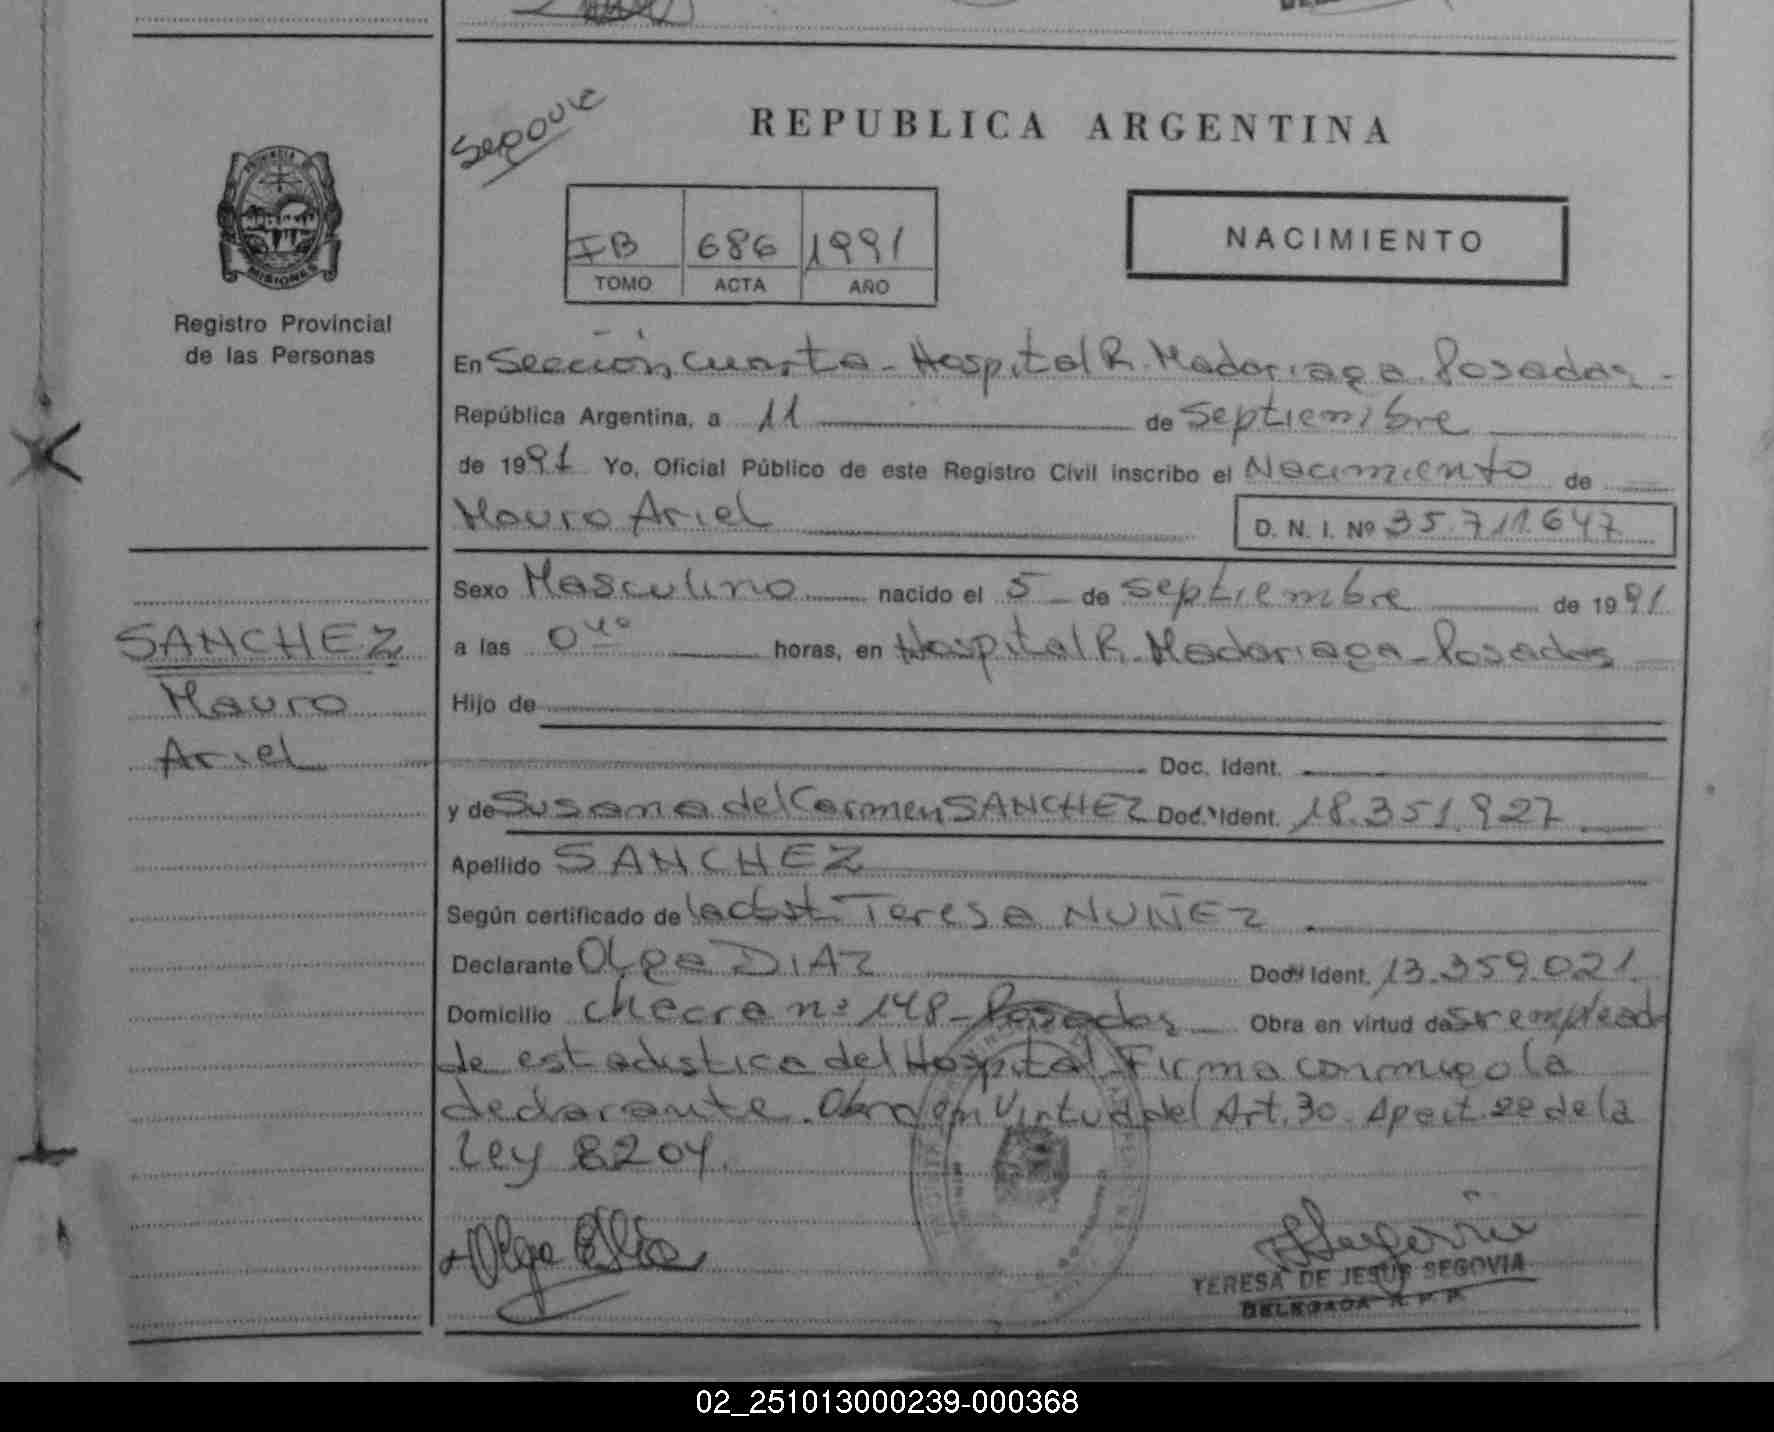 REPUBLICA ARGENTINA
IB 686 1991
TOMO ACTA AÑO
NACIMIENTO
PROVINCIA
MISIONES
Registro Provincial
de las Personas
En Sección Cuarta - Hospital R. Madariaga. Posadas -
República Argentina, a 11 de Septiembre
de 1991 Yo, Oficial Público de este Registro Civil inscribo el Nacimiento de
Mauro Ariel D. N. I. Nº 35.711.647
Sexo Masculino nacido el 5 - de septiembre de 1991
a las 04º horas, en Hospital R. Madariaga - Posadas
Hijo de
Doc. Ident.
y de Susana del Carmen SANCHEZ Doc. Ident. 18.351.927
Apellido SANCHEZ
Según certificado de la Obst. Teresa NUÑEZ
Declarante Olga DIAZ Doc. Ident. 13.359.021
Domicilio Chacra nº 148 - Posadas Obra en virtud de
de estadistica del Hospital. Firma conmigo la
declarante. Obra en Virtud del Art. 30. Apart. 2º de la
Ley 8204.
SANCHEZ
Mauro
Ariel
TERESA DE JESUS SEGOVIA
DELEGADA R. P. P.
02_251013000239-000368